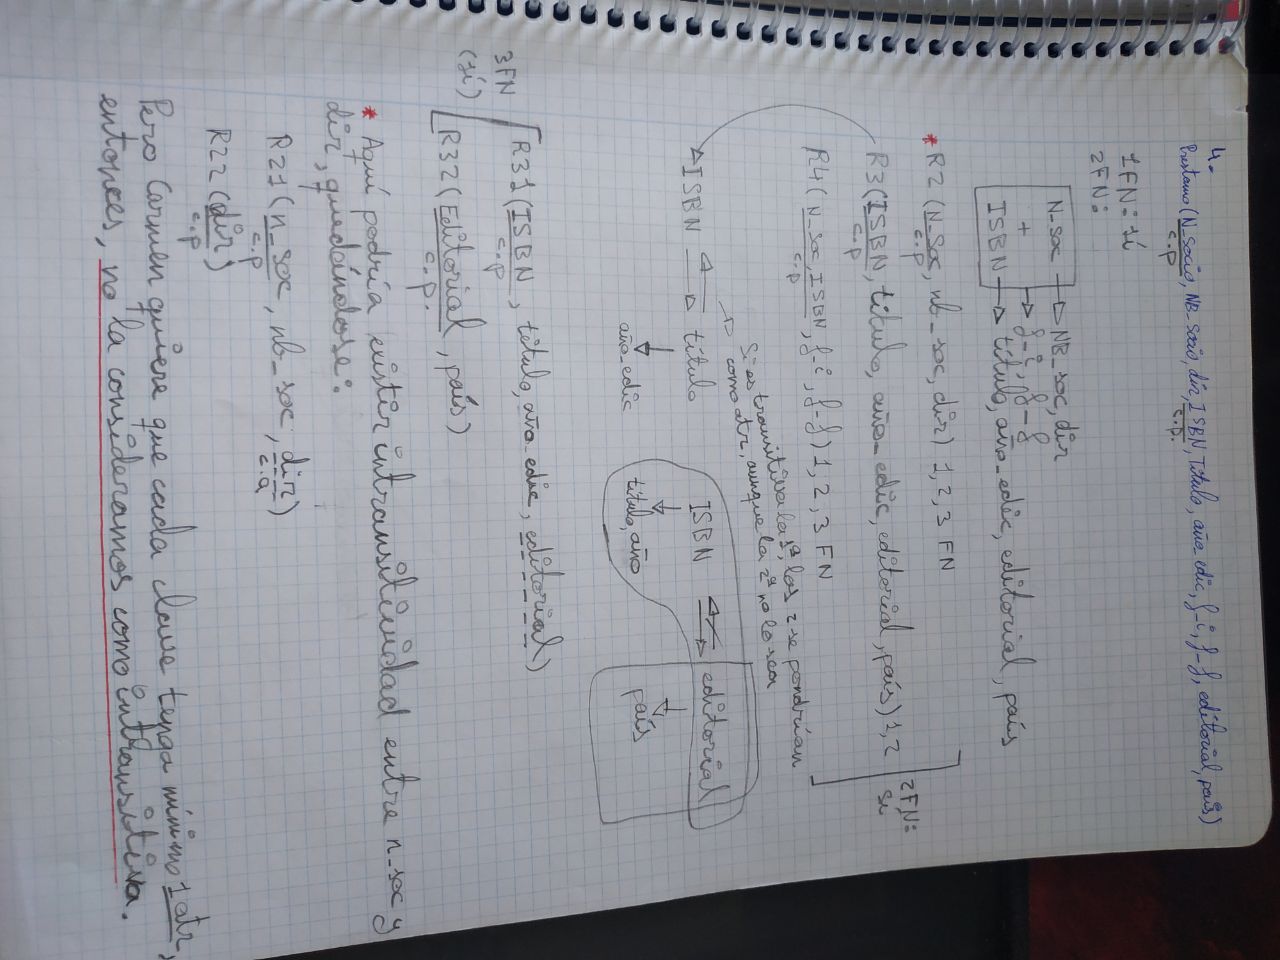 4.
Prestamo (N_Socio, NB_Socio, dir, ISBN, Título, año_edic, f_i, f_f, editorial, país)
c.p c.p.
1FN: sí
2FN:
N_soc → NB_soc, dir
+ → f_i, f_f
ISBN → título, año_edic, editorial, país
* R2 (N_Soc, nb_soc, dir) 1, 2, 3 FN
c.p
R3 (ISBN, título, año_edic, editorial, país) 1, 2
c.p
2FN:
sí
R4 (N_Soc, ISBN, f_i, f_f) 1, 2, 3 FN
c.p
Si es transitiva la 1ª, las 2 se pondrían
como atr, aunque la 2ª no lo sea
ISBN título
año_edic
ISBN editorial
título, año país
3FN
(sí)
R31 (ISBN, título, año_edic, editorial)
c.p
R32 (Editorial, país)
c.p.
* Aquí podría existir intransitividad entre n_soc y
dir, quedándose:
R21 (n_soc, nb_soc, dir)
c.p c.a
R22 (dir)
c.p
Pero Carmen quiere que cada clave tenga mínimo 1 atr,
entonces, no la consideramos como intransitiva.